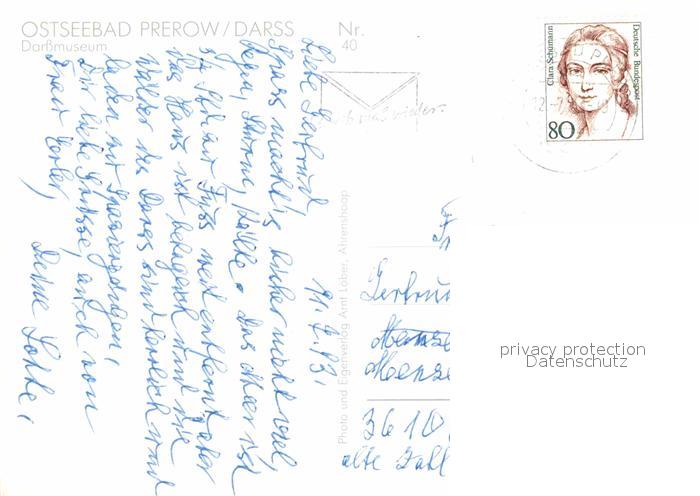 OSTSEEBAD PREROW/DARSS
Darßmuseum
Nr.
40
Clara Schumann
Deutsche Bundespost
80
Photo und Eigenverlag Amt Löber, Ahrenshoop
11.7.93,
Liebe Gertrud,
Spass macht's bisher nicht viel,
Regen, Sturm, Kälte. Das Meer ist
zu Fuss weit entfernt, aber
das Haus ist behaglich und die
Wälder des Darss sind herrlich und
laden zu Spaziergängen.
Dir liebe Grüsse, auch von
Frau
Deine Lotte,
3610
alte Zahl
privacy protection
Datenschutz